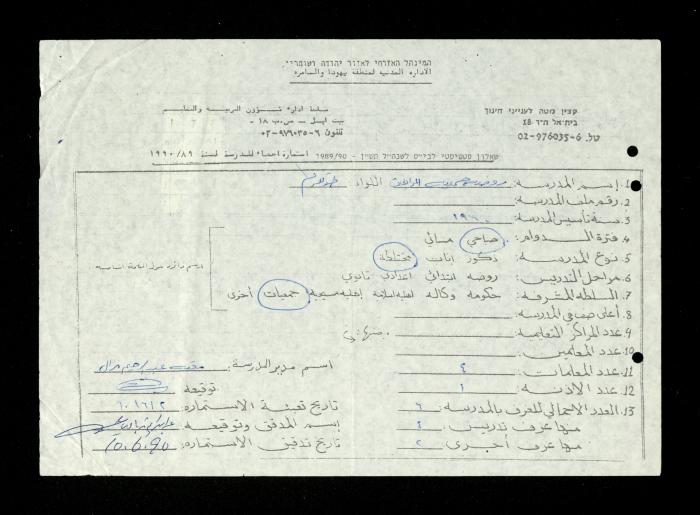 המינהל האזרחי לאזור יהודה ושומרון
الادارة المدنية لمنطقة يهودا والسامرة
קצין מטה לענייני חינוך
בית אל ת"ד 18
טל. 02-976035-6
ضابط اداره شؤون التربيه والتعليم
بيت ايل - ص.ب ١٨
تلفون ٦-٩٧٦٠٣٥-٠٢
שאלון סטטיסטי לבי"ס לשנה"ל תש"ן - 1989/90 استمارة احصاء للمدرسة لسنة ١٩٩٠/٨٩
١. اسم المدرسه: روضة جمعية اللواء طولكرم
٢. رقم ملف المدرسه:
٣. سنة تأسيس المدرسه: ١٩
٤. فترة الدوام: صباحي مسائي
٥. نوع المدرسه: ذكور اناث مختلطة
٦. مراحل التدريس: روضه ابتدائي اعدادي ثانوي
ارسم دائره حول الكلمة المناسبه
٧. السلطه المشرفه: حكومه وكاله اهليه اسلامية اهليه مسيحية جمعيات أخرى
٨. أعلى صف في المدرسه:
٩. عدد المراكز التعليميه:
١٠. عدد المعلمين:
١١. عدد المعلمات: ٤
١٢. عدد الاذنه: ١
١٣. العدد الاجمالي للغرف بالمدرسه: ٦
منها غرف تدريس: ٤
منها غرف أخرى: ٢
اسم مدير المدرسة:
توقيعه
تاريخ تعبئة الاستماره: ٦٠١٦١٢
إسم المدقق وتوقيعه:
تاريخ تدقيق الاستماره: 10.6.90